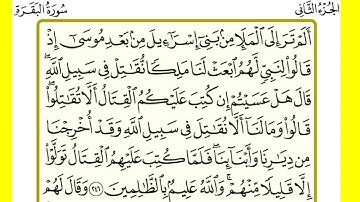 الجزء الثاني سورة البقرة
أَلَمْ تَرَ إِلَى ٱلْمَلَإِ مِنۢ بَنِىٓ إِسْرَٰٓءِيلَ مِنۢ بَعْدِ مُوسَىٰٓ إِذْ
قَالُوا۟ لِنَبِىٍّ لَّهُمُ ٱبْعَثْ لَنَا مَلِكًا نُّقَٰتِلْ فِى سَبِيلِ ٱللَّهِ ۖ
قَالَ هَلْ عَسَيْتُمْ إِن كُتِبَ عَلَيْكُمُ ٱلْقِتَالُ أَلَّا تُقَٰتِلُوا۟ ۖ
قَالُوا۟ وَمَا لَنَآ أَلَّا نُقَٰتِلَ فِى سَبِيلِ ٱللَّهِ وَقَدْ أُخْرِجْنَا
مِن دِيَٰرِنَا وَأَبْنَآئِنَا ۖ فَلَمَّا كُتِبَ عَلَيْهِمُ ٱلْقِتَالُ تَوَلَّوْا۟
إِلَّا قَلِيلًا مِّنْهُمْ ۗ وَٱللَّهُ عَلِيمٌۢ بِٱلظَّٰلِمِينَ ٢٤٦ وَقَالَ لَهُمْ